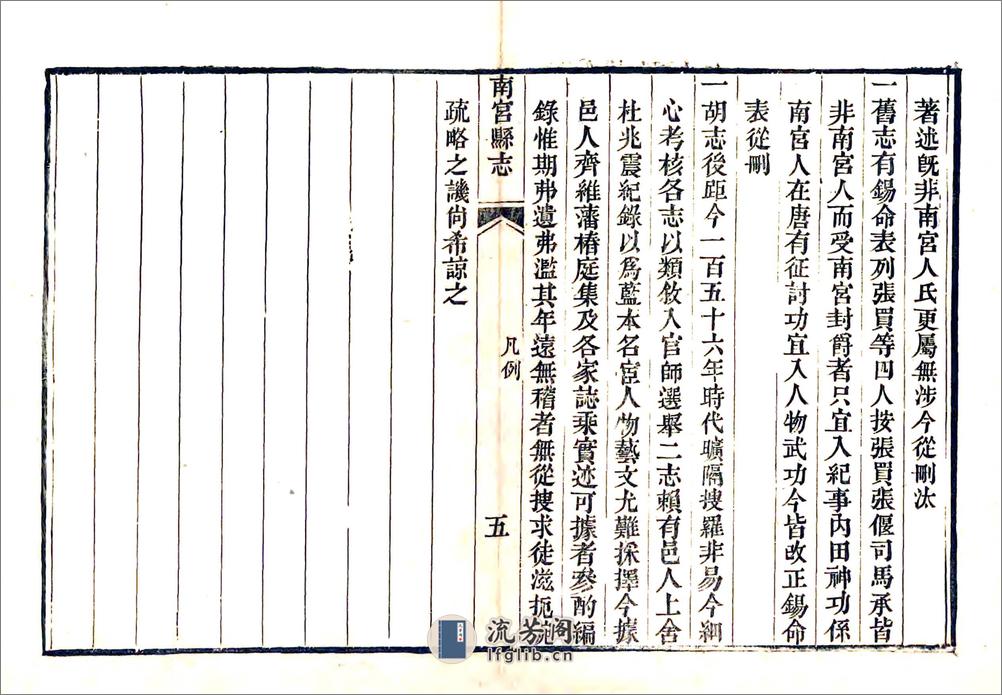 著述旣非南宮人氏更屬無涉今從刪汰
一舊志有錫命表列張買等四人按張買張偃司馬承皆
非南宮人而受南宮封爵者只宜入紀事內田神功係
南宮人在唐有征討功宜入人物武功今皆改正錫命
表從刪
一胡志後距今一百五十六年時代曠隔搜羅非易今細
心考核各志以類敘入官師選舉二志賴有邑人上舍
杜兆震紀錄以爲藍本名宦人物藝文尤難採擇今據
邑人齊維藩椿庭集及各家誌乘實迹可據者參酌編
錄惟期弗遺弗濫其年遠無稽者無從搜求徒滋扼
南宮縣志
凡例
五
疏略之譏尙希諒之
流芳閣
lfglib.cn